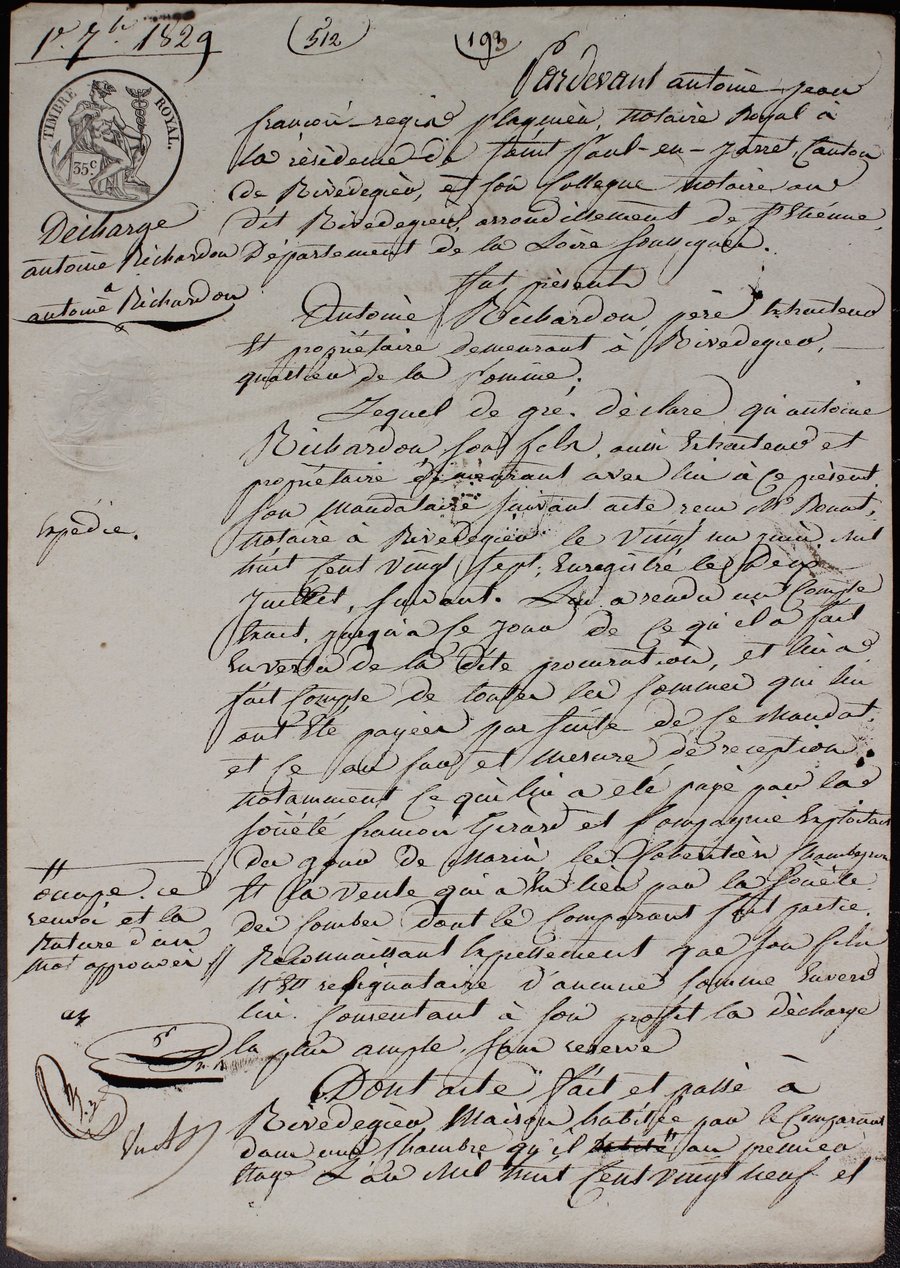 1er 7bre 1829
512
193
TIMBRE ROYAL.
35 c
Décharge
antoine Richardon
a
antoine Richardon
Expédié.
Pardevant antoine jean
françois regis plagnieu, notaire Royal à
la résidence de saint Paul-en-Jarret, Canton
de Rivedegier, et son Collegue notaire au
dit Rivedegier, arrondissement de St Etienne,
Département de la Loire soussignés.
fut présent
Antoine Richardon père Extracteur
Et propriétaire demeurant à Rivedegier,
quartier de la Pomme,
Lequel de gré déclare qu'antoine
Richardon son fils, aussi Extracteur et
propriétaire demeurant avec lui à ce présent
son mandataire suivant acte reçu Me
notaire à Rivedegier le vingt un juin mil
huit Cent vingt sept, Enregistré le Deux
Juillet, suivant. Lui a rendu un Compte
Exact, jusqu'à ce jour de ce qu'il a fait
En vertu de la dite procuration, et lui a
fait Compte de toutes les sommes qui lui
ont été payées par suite de ce mandat
et ce au fur et mesure de réception
notamment ce qui lui a été payé par la
société françois Girard et Compagnie Exploitans
du puits de Marin les Chambeyron
Et la vente qui a eu lieu par la société
des Combes dont le Comparant fait partie.
Reconnaissant Expressément que son fils
n'Est reliquataire d'aucune somme Envers
lui. Consentant à son profit la décharge
la plus ample, sans reserve
Dont acte fait et passé à
Rivedegier Maison habitée par le Comparant
dans une Chambre qu'il habite // au premier
Etage L'an mil huit Cent vingt neuf et
//
occupe. ce
renvoi et la
rature d'un
mot approuvés //